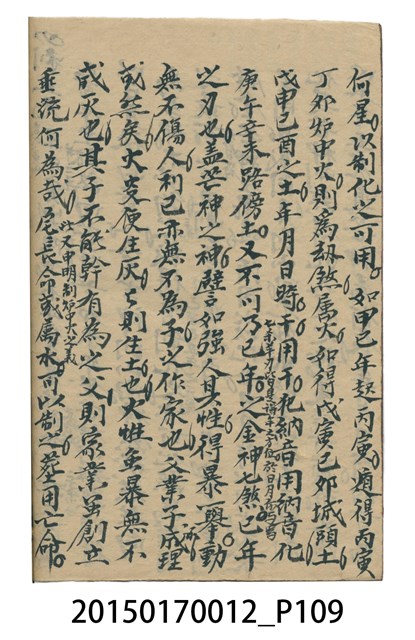 何星以制化之可用如甲己年起丙寅遁得丙寅
丁卯炉中火則為劫煞属火如得戊寅己卯城頭土
戊申己酉之土年月日時干用干化納音用納音化
庚午辛未路傍土又不可乃己年之金神七煞己年
之刃也盖芒神之神譬如強人其性得暴一舉動
無不傷人利己亦無不為子之作家也父業子成理
或然矣火炎便生灰灰則生土也火性虽暴無不
成灰也其子不能幹有為之父則家業虽創立
垂流何為哉
此又申明制炉中火之義
凡長命或属水可以制之葬用亡命
20150170012_P109